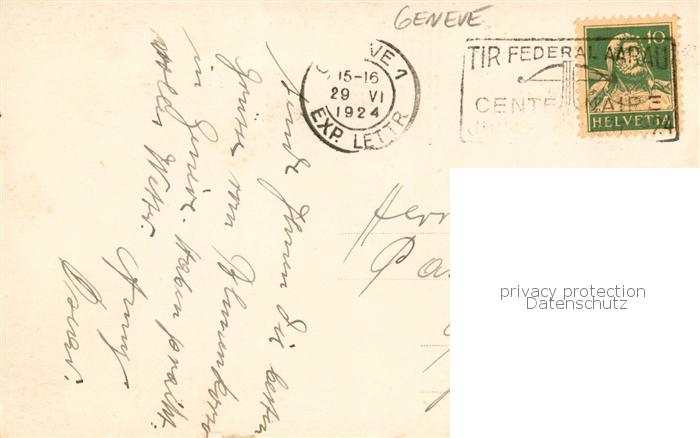 GENEVE
GENEVE 1
15-16
29 VI
1924
EXP. LETTR
TIR FEDERAL AARAU
CENTENAIRE
10
HELVETIA
Sende Ihnen die besten
Grüsse vom Blumenkorso
in Genève. Haben pracht-
volles Wetter.
Oscar.
Herr
privacy protection
Datenschutz